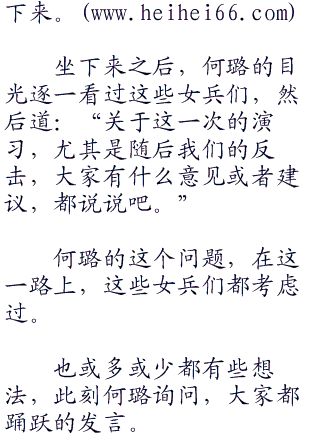 下来。(www.heihei66.com)
坐下来之后，何璐的目
光逐一看过这些女兵们，然
后道：“关于这一次的演
习，尤其是随后我们的反
击，大家有什么意见或者建
议，都说说吧。”
何璐的这个问题，在这
一路上，这些女兵们都考虑
过。
也或多或少都有些想
法，此刻何璐询问，大家都
踊跃的发言。